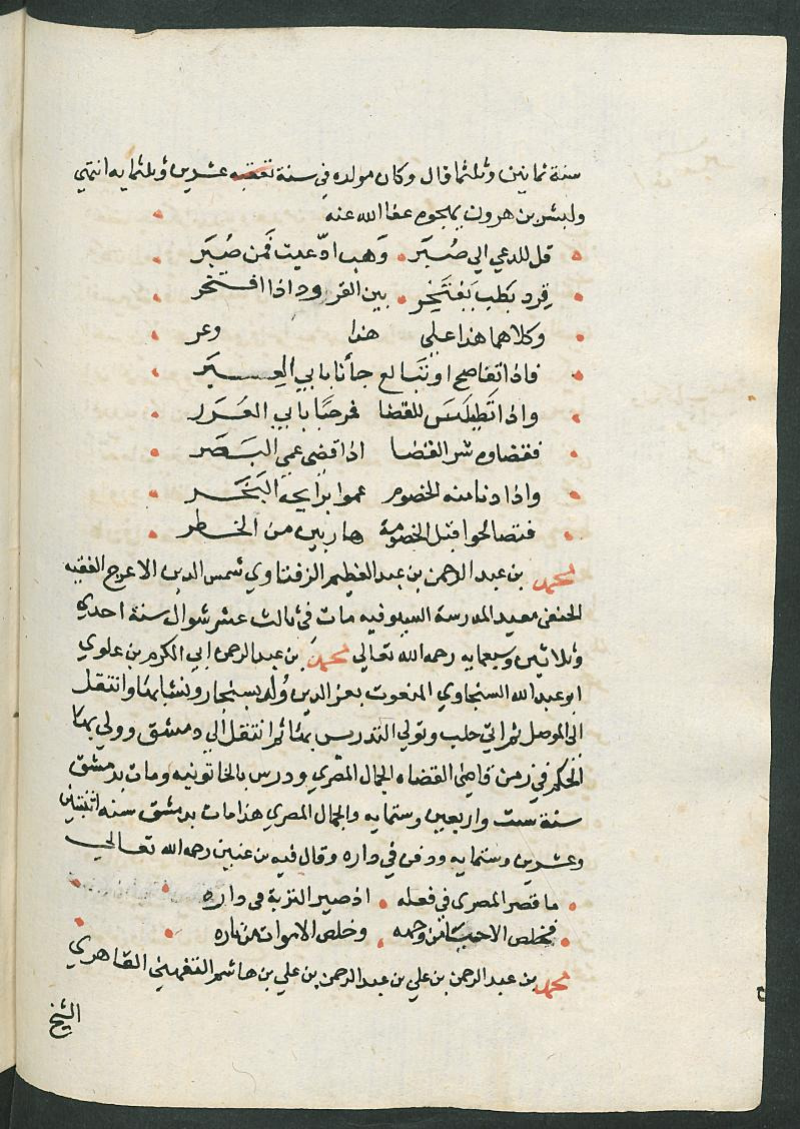 سنة ثمانين وثلثما قال وكان مولده في سنة عشرين وثلثمايه انتهي
ولبشر بن هرون يهجوه عفا الله عنه
قل للدعي الي صُبَر وَهب ادّعيت فمن صُبَر
قرد بطب يفتخر بين القرود اذا افتخر
وكلاهما هذا علي هذا وعر
فاذا تفاصح او تبالع جأنا بابي العسبر
واذا تطيلس للقضا فمرحبا بابي العرر
فقضاوه شر القضا اذا قضي عمي البصر
واذا دنا منه الخصوم عموا برايحه البخر
فتصالحوا قبل الخصومة هاربين من الخطر
محمد بن عبد الرحمن بن عبد العظيم الزفتاوي شمس الدين الاعرج الفقيه
الحنفي معيد المدرسة السيوفيه مات في ثالث عشر شوال سنة احدي
وثلاثين وسبعمايه رحمه الله تعالي محمد بن عبد الرحمن ابي الكرم بن علوي
ابو عبد الله السنجاوي المنعوت بعز الدين وُلد بسنجار ونشا بها وانتقل
الى الموصل ثم اتي حلب وتولي التدريس بها ثم انتقل الي دمشق وولي بها
الحكم في زمن قاضي القضاه الجمال المصري ودرس بالخاتونيه ومات بدمشق
سنة ست واربعين وستمايه والجمال المصري هذا مات بدمشق سنه اثنتين
وعشرين وستمايه ودفن في داره وقال فيه بن عنين رحمه الله تعالي
ما قصر المصرى في فعله اذ صير التربة في داره
فخلص الاحيا من رجمه وخلص الاموات من ناره
محمد بن عبد الرحمن بن علي بن عبد الرحمن بن علي بن هاشم التفهني القاهري
الشيخ